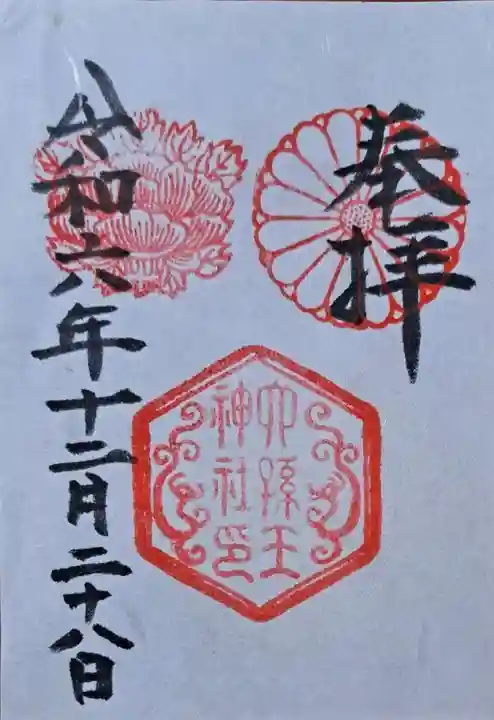 奉拝
六孫王
神社印
令和六年十二月二十八日